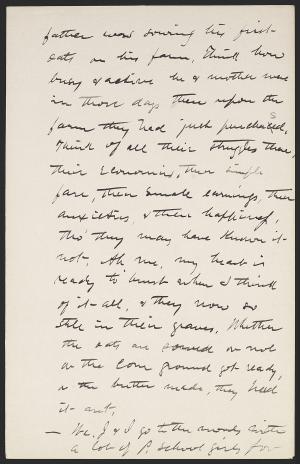 father was sowing his first
oats on his farm. Think how
busy & active he & mother were
in those days there upon the
farm they had just purchased,
think of all their struggles there,
their economies, their simple
fare, their small earnings, their
anxieties, & their happiness,
tho' they may have known it
not. Ah me, my heart is
ready to burst when I think
of it all, & they now so
still in their graves. Whether
the oats are sowed or not
or the corn ground got ready,
or the butter made, they heed
it not.
— We, J & I go to the woods with
a lot of P. school girls for